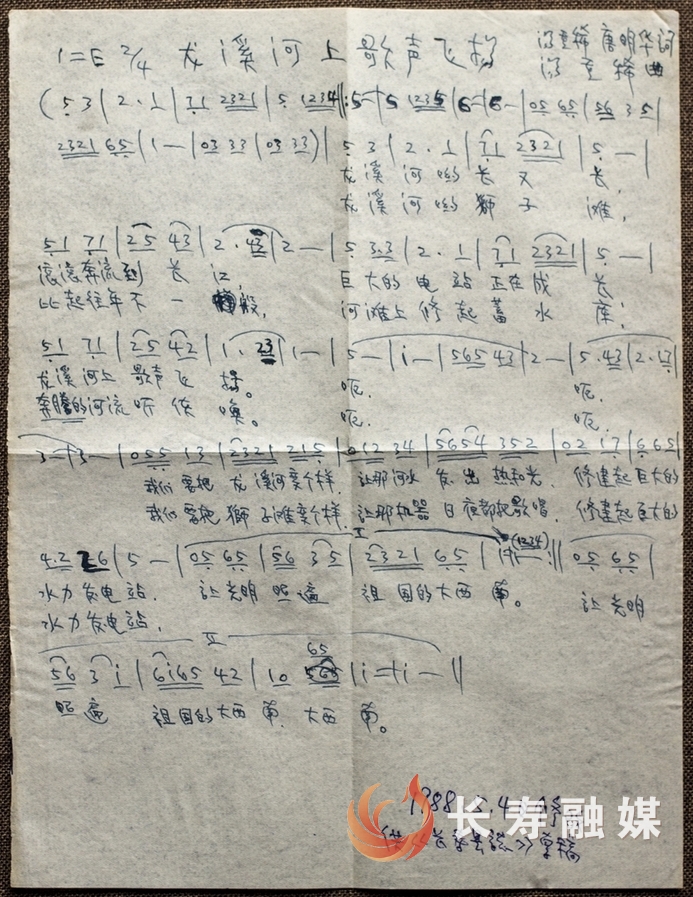 1=E 2/4 龙溪河上歌声飞扬 唐明华词
曲
(5 3|2·1|71 2321|5 1234‖:5-|5 1235|6-|6-|05 65|56 35|
2321 65|1-|03 33|03 33)|5 3|2·1|71 2321|5-|
龙溪河哟长又长,
龙溪河哟狮子滩,
51 71|25 43|2·43|2-|5 3·3|2·1|71 2321|5-|
滚滚奔流到长江, 巨大的电站正在成长
比起往年不一般, 河滩上修起蓄水库;
51 71|25 42|1·23|1-|5-|i-|565 43|2-|5·43|2·17|
龙溪河上歌声飞扬。 呃, 呃,
奔腾的河流听使唤。 呃, 呃,
3-|3-|055 13|2321 215|012 34|5654 352|02 17|6 65|
我们要把龙溪河变个样, 让那河水发出热和光, 修建起巨大的
我们要把狮子滩变个样, 让那机器日夜都把歌唱, 修建起巨大的
I
42 26|5-|05 65|56 35|2321 65|1 (1234):‖05 65|
水力发电站, 让光明照遍祖国的大西南。 让光明
水力发电站,
II
65
56 3i|6i65 42|10 565|i-|i-‖
照遍祖国的大西南, 大西南。
1988.3.4
草稿
长寿融媒